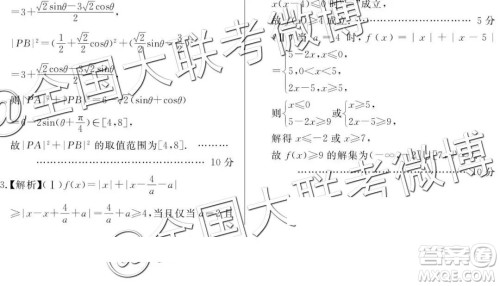 =3+(√2sinθ-3√2cosθ)/2,
|PB|²=(1/2+√2/2cosθ)²+(√2/2sinθ-3/2)²
=3+(√2cosθ-3√2sinθ)/2
则|PA|²+|PB|²=6-√2(sinθ+cosθ)
=6-2sin(θ+π/4)∈[4,8],
故|PA|²+|PB|²的取值范围为[4,8].
10分
3.【解析】(Ⅰ)f(x)=|x|+|x-4/a-a|
≥|x-x+4/a+a|=4/a+a≥4,当且仅当a=2且
x(x-4)≤0时
成立,
5分
当a=4时,f(x)=|x|+|x-5|
5-2x,x≤0,
=5,0<x<5,
2x-5,x≥5,
则{x≤0 5-2x≥9或{x≥5 2x-5≥9,
解得x≤-2或x≥7,
故f(x)≥9的解集为(-∞
10分
@全国大联考微博
@全国大联考微博
作业帮